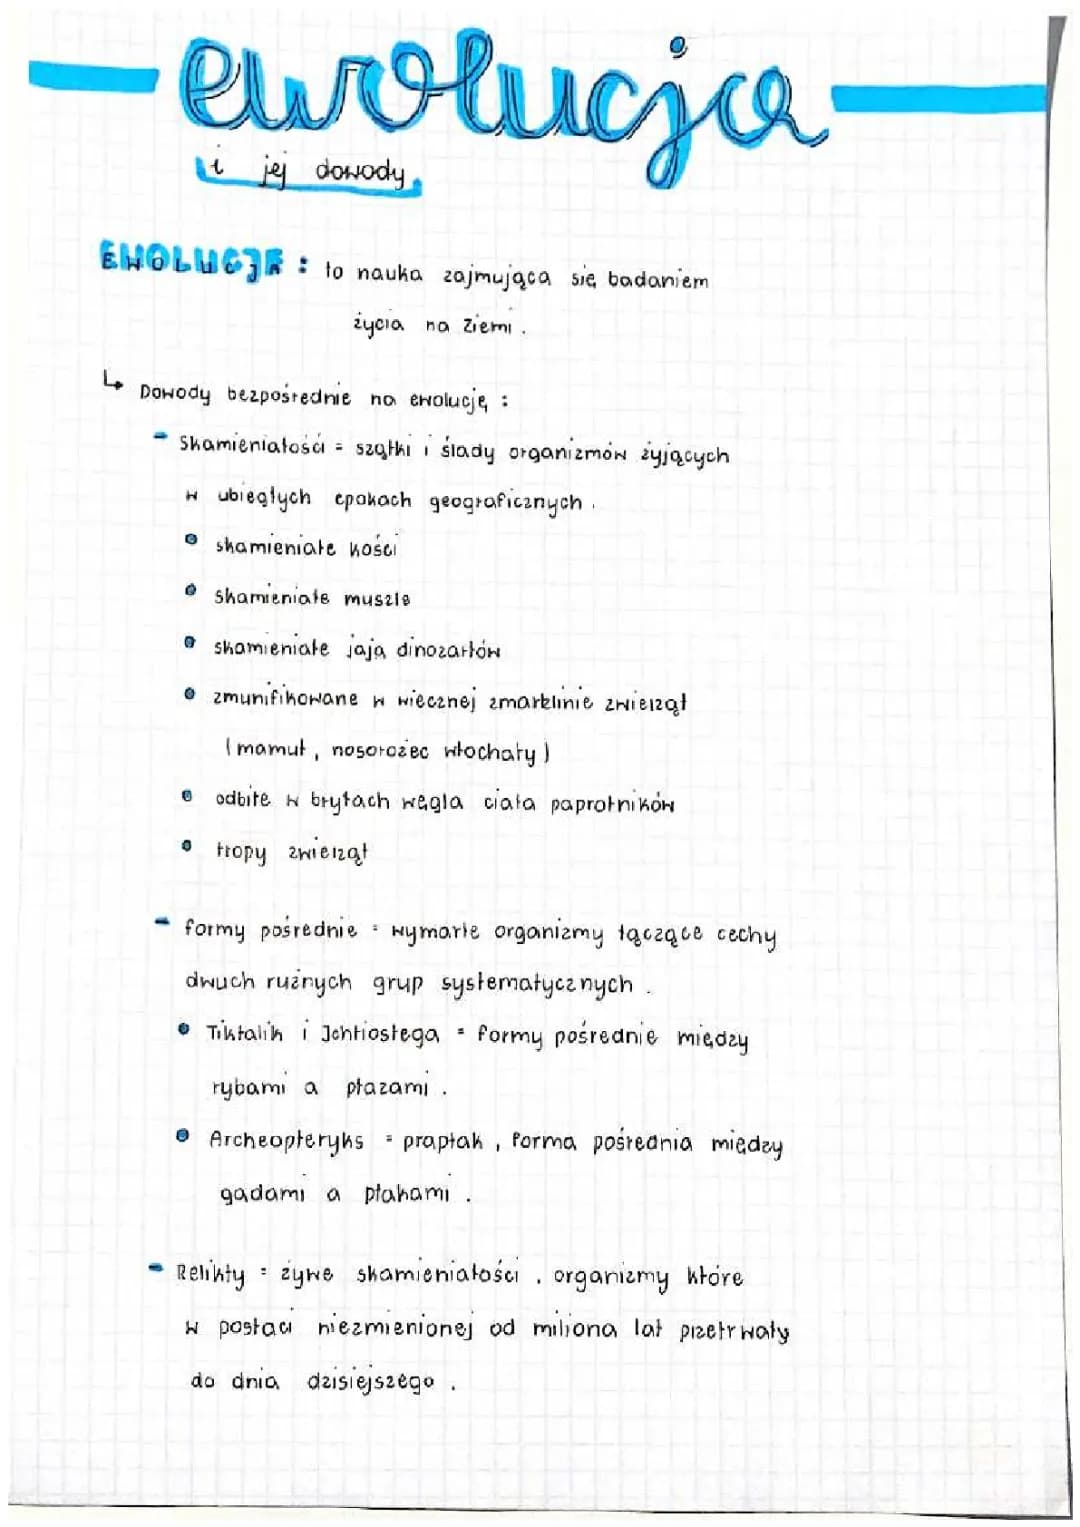 ewolucja
i jej dowody
EWOLUCJA : to nauka zajmująca się badaniem
życia na Ziemi.
↳ Dowody bezpośrednie na ewolucję :
- Skamieniałości = szątki i ślady organizmów żyjących
w ubiegłych epokach geograficznych.
• skamieniałe kości
• skamieniałe muszle
• skamieniałe jaja dinozarłów
• zmunifikowane w wiecznej zmarzlinie zwierząt
(mamut, nosorożec włochaty)
• odbite w bryłach węgla ciała paprotników
• tropy zwierząt
- formy pośrednie = wymarłe organizmy łączące cechy
dwuch rużnych grup systematycznych.
• Tiktalik i Ichtiostega = formy pośrednie między
rybami a płazami.
• Archeopteryks = praptak, forma pośrednia między
gadami a ptakami.
- Relikty = żywe skamieniałości, organizmy które
w postaci niezmienionej od miliona lat przetrwały
do dnia dzisiejszego.